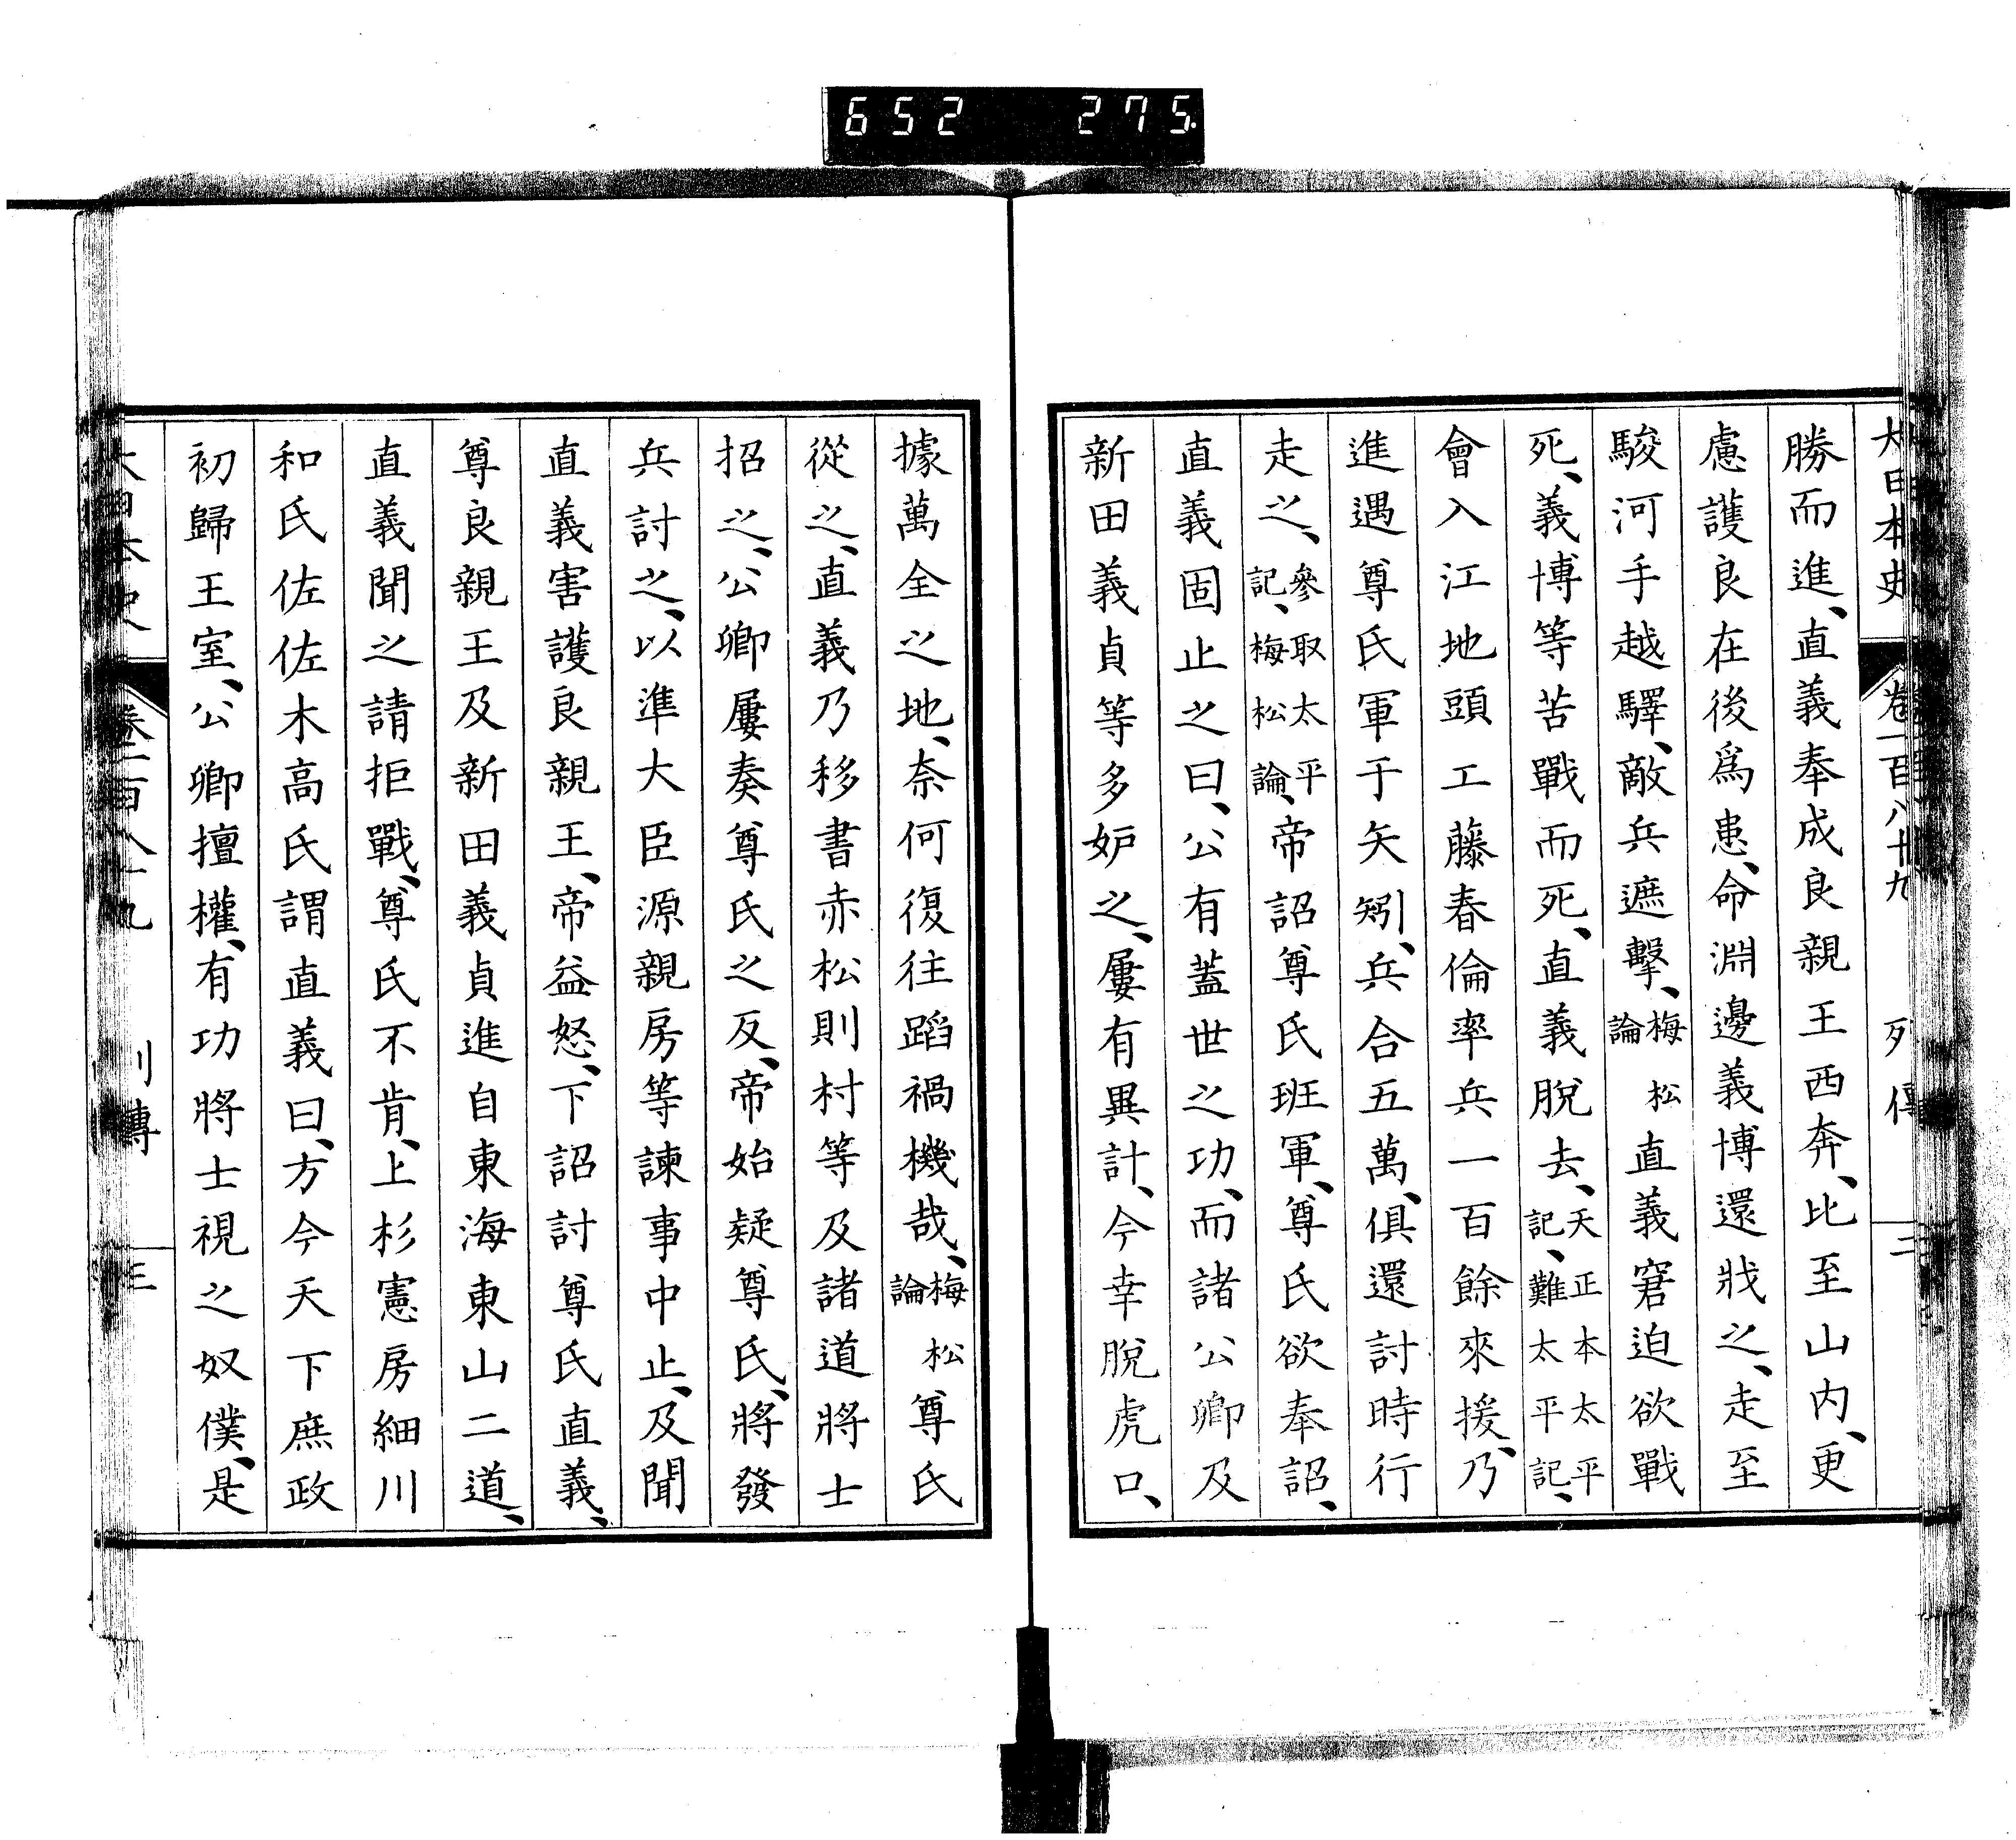 652 275
大日本史 卷一百八十九 列傳 二
勝而進、直義奉成良親王西奔、比至山内、更
慮護良在後爲患、命淵邊義博還戕之、走至
駿河手越驛、敵兵遮擊、梅松論直義窘迫欲戰
死、義博等苦戰而死、直義脫去、天正本太平記、難太平記、
會入江地頭工藤春倫率兵一百餘來援、乃
進遇尊氏軍于矢矧、兵合五萬、俱還討時行
走之、參取太平記、梅松論、帝詔尊氏班軍、尊氏欲奉詔、
直義固止之曰、公有蓋世之功、而諸公卿及
新田義貞等多妒之、屢有異計、今幸脫虎口、
據萬全之地、奈何復往蹈禍機哉、梅松論尊氏
從之、直義乃移書赤松則村等及諸道將士
招之、公卿屢奏尊氏之反、帝始疑尊氏、將發
兵討之、以準大臣源親房等諫事中止、及聞
直義害護良親王、帝益怒、下詔討尊氏直義、
尊良親王及新田義貞進自東海東山二道、
直義聞之請拒戰、尊氏不肯、上杉憲房細川
和氏佐佐木高氏謂直義曰、方今天下庶政
初歸王室、公卿擅權、有功將士視之奴僕、是
大日本史 卷一百八十九 列傳 三